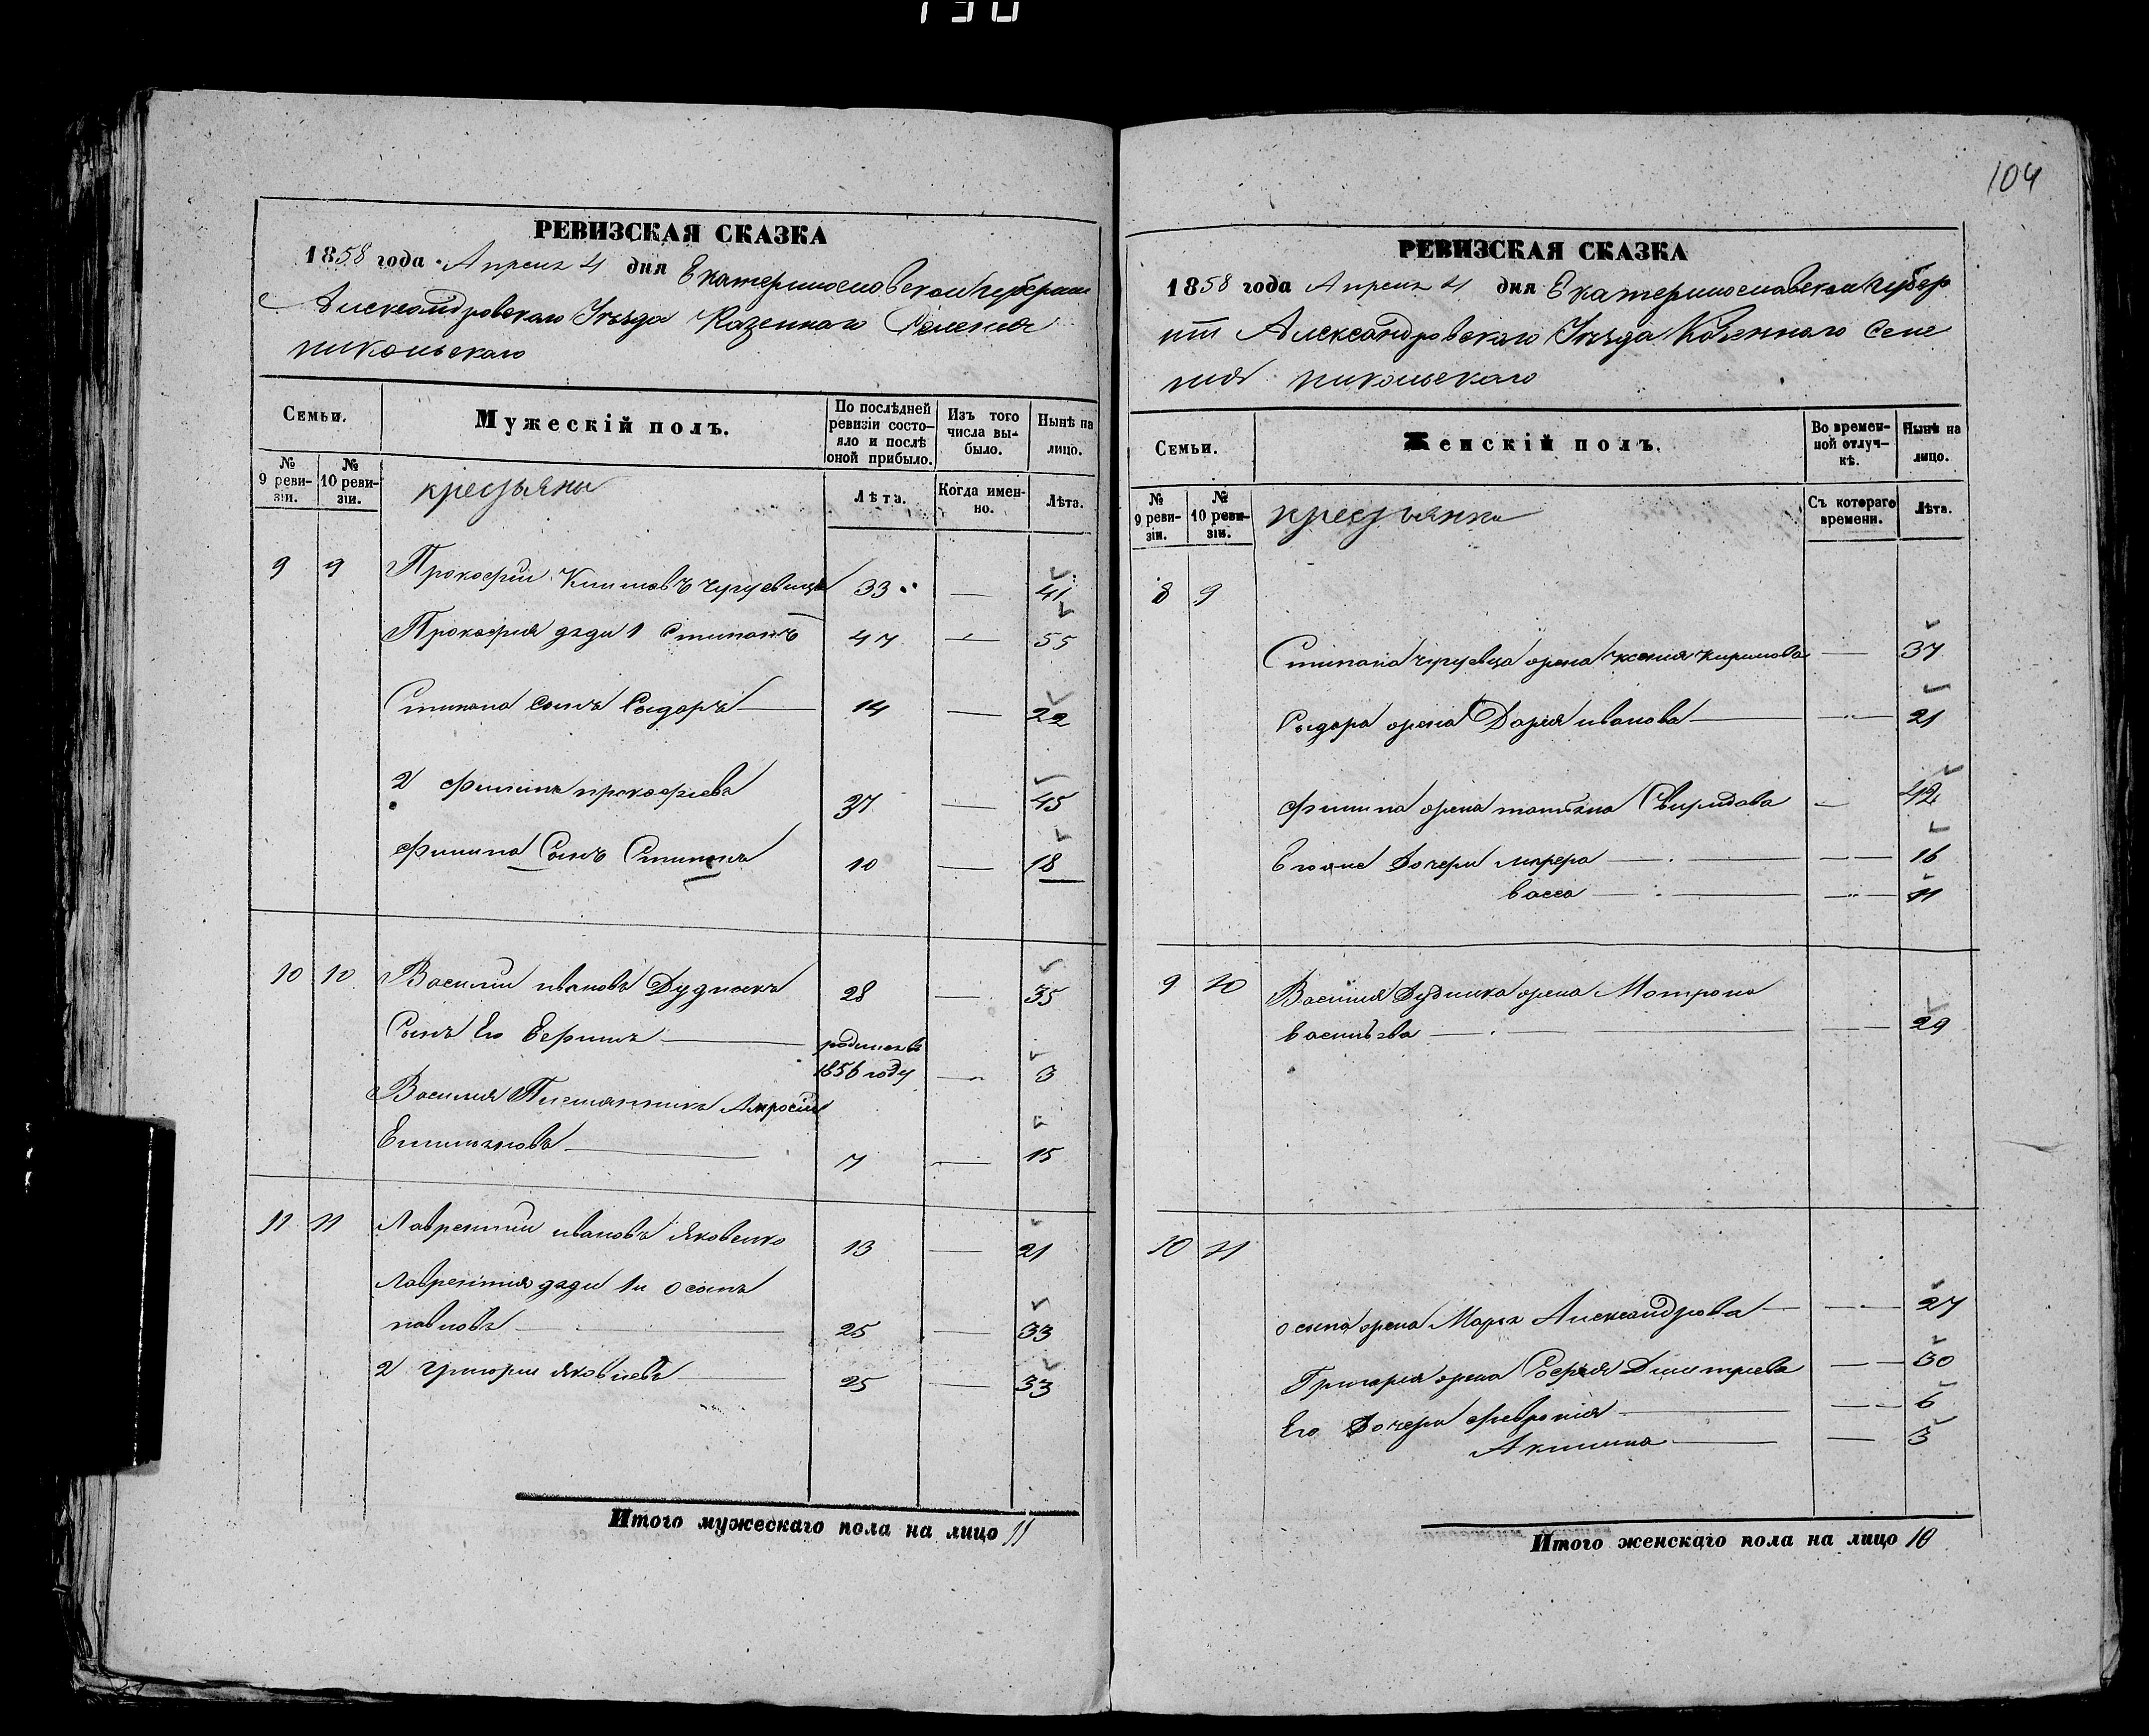 130
104
РЕВИЗСКАЯ СКАЗКА
1858 года Апреля 4 дня Екатеринославской губернии
Александровскаго Уезда Казеннаго Селения
никольскаго
Семьи.
Мужескій полъ.
По послѣдней ревизіи состояло и послѣ оной прибыло.
Изъ того числа выбыло.
Нынѣ на лицо.
№ 9 ревизіи.
№ 10 ревизіи.
крестьяны
Лѣта.
Когда именно.
Лѣта.
9 9 Прокофии Климовъ чугуевецъ 33 — 41
Прокофия дяди 1 Стипанъ 47 — 55
Стипана Сынъ Сыдоръ — 14 — 22
2 Филипъ прокофиевъ 37 — 45
Филипа Сынъ Стипанъ 10 — 18
10 10 Василии ивановъ Дудникъ 28 — 35
Сынъ Его Ефимъ — родился въ
1856 году — 3
Василия Племянникъ Амросии
Емильяновъ — 7 — 15
11 11 Лаврентии ивановъ Яковенко 13 — 21
Лаврентия дяди 1и осипъ
павловъ — 25 — 33
2 Григории Яковлевъ — 25 — 33
Итого мужескаго пола на лицо 11
РЕВИЗСКАЯ СКАЗКА
1858 года Апреля 4 дня Екатеринославской губер
нии Александровскаго Уезда Казеннаго Селе
ния никольскаго
Семьи.
Женскій полъ.
Во временной отлучкѣ.
Нынѣ на лицо.
№ 9 ревизіи.
№ 10 ревизіи.
крестьянки
Съ котораго времени.
Лѣта.
8 9
Стипана чугуевца жена Ксения Кирилова — 37
Сыдора жена Дария иванова — — 21
Филипа жена татьяна Свиридова — 42
Его же Дочери — — 16
васса — — 11
9 10 Василия Дудника жена Матрона
васильева — — 29
10 11
осипа жена Марья Александрова — — 27
Григория жена Софья Димитриева — 30
Его Дочери Феврония — — 6
Акилина — — 3
Итого женскаго пола на лицо 10